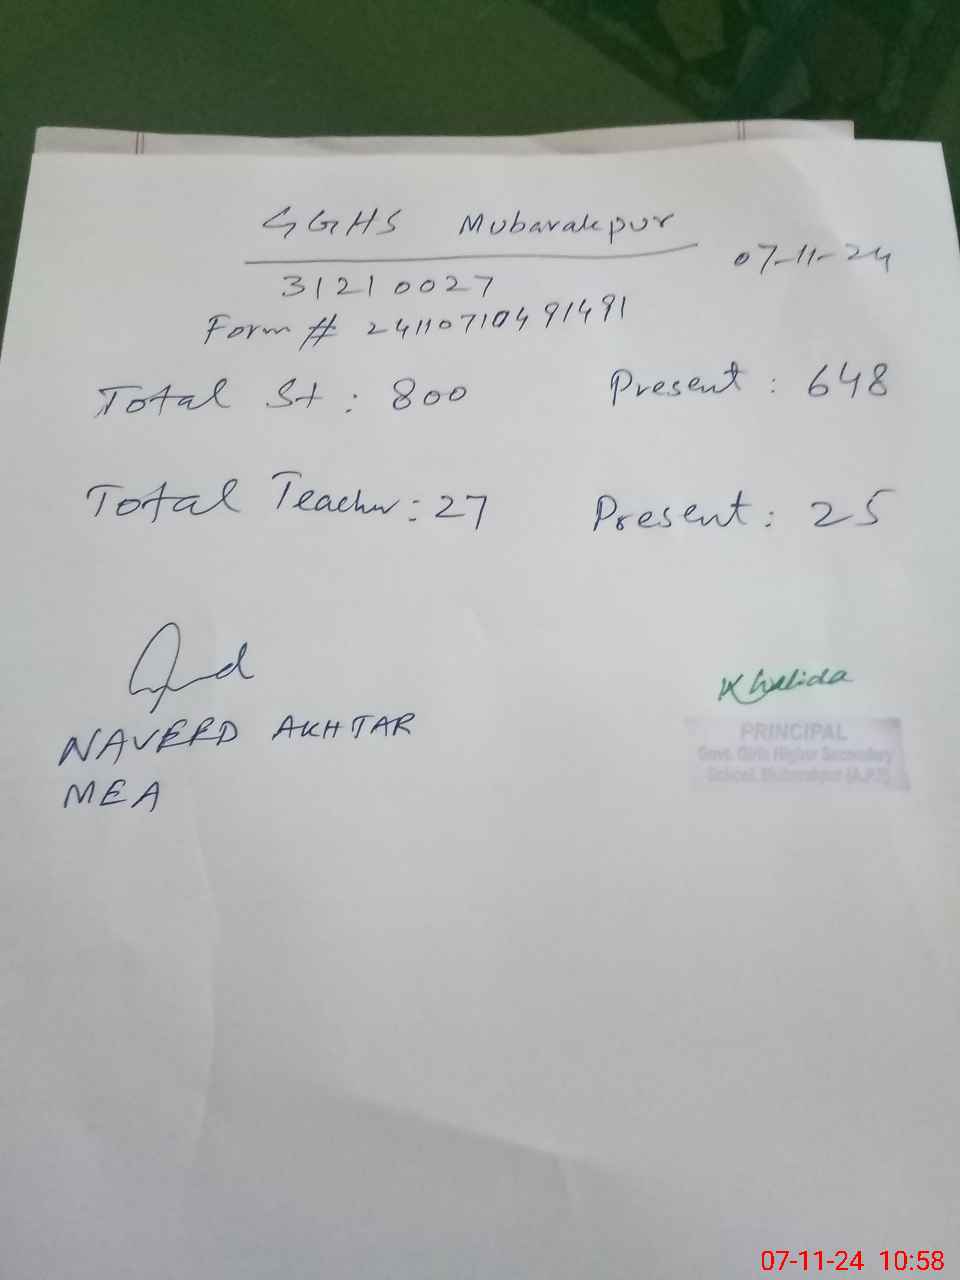 GGHS Mubarakpur
07-11-24
31210027
Form # 24110710491491
Total St : 800 Present : 648
Total Teacher : 27 Present : 25
NAVEED AKHTAR
MEA
Khalida
PRINCIPAL
Govt. Girls Higher Secondary
School, Mubarakpur (A.P.E)
07-11-24 10:58